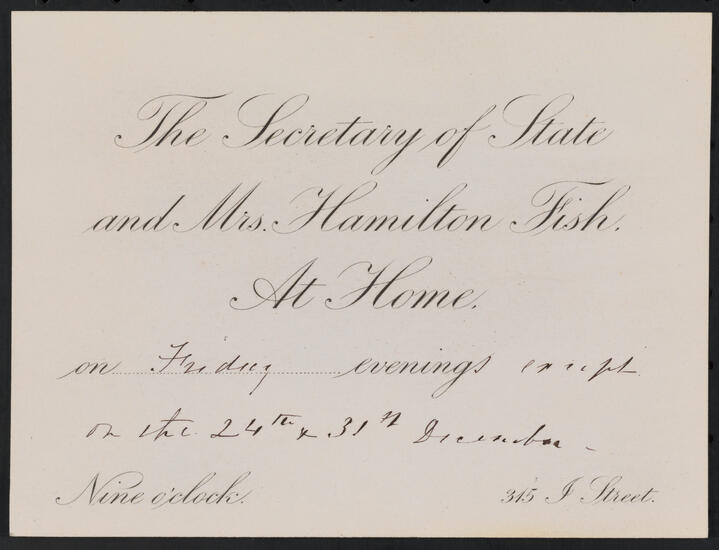 The Secretary of State
and Mrs. Hamilton Fish.
At Home.
on Friday evenings except
on the 24th & 31st December
Nine o'clock.
315 I Street.